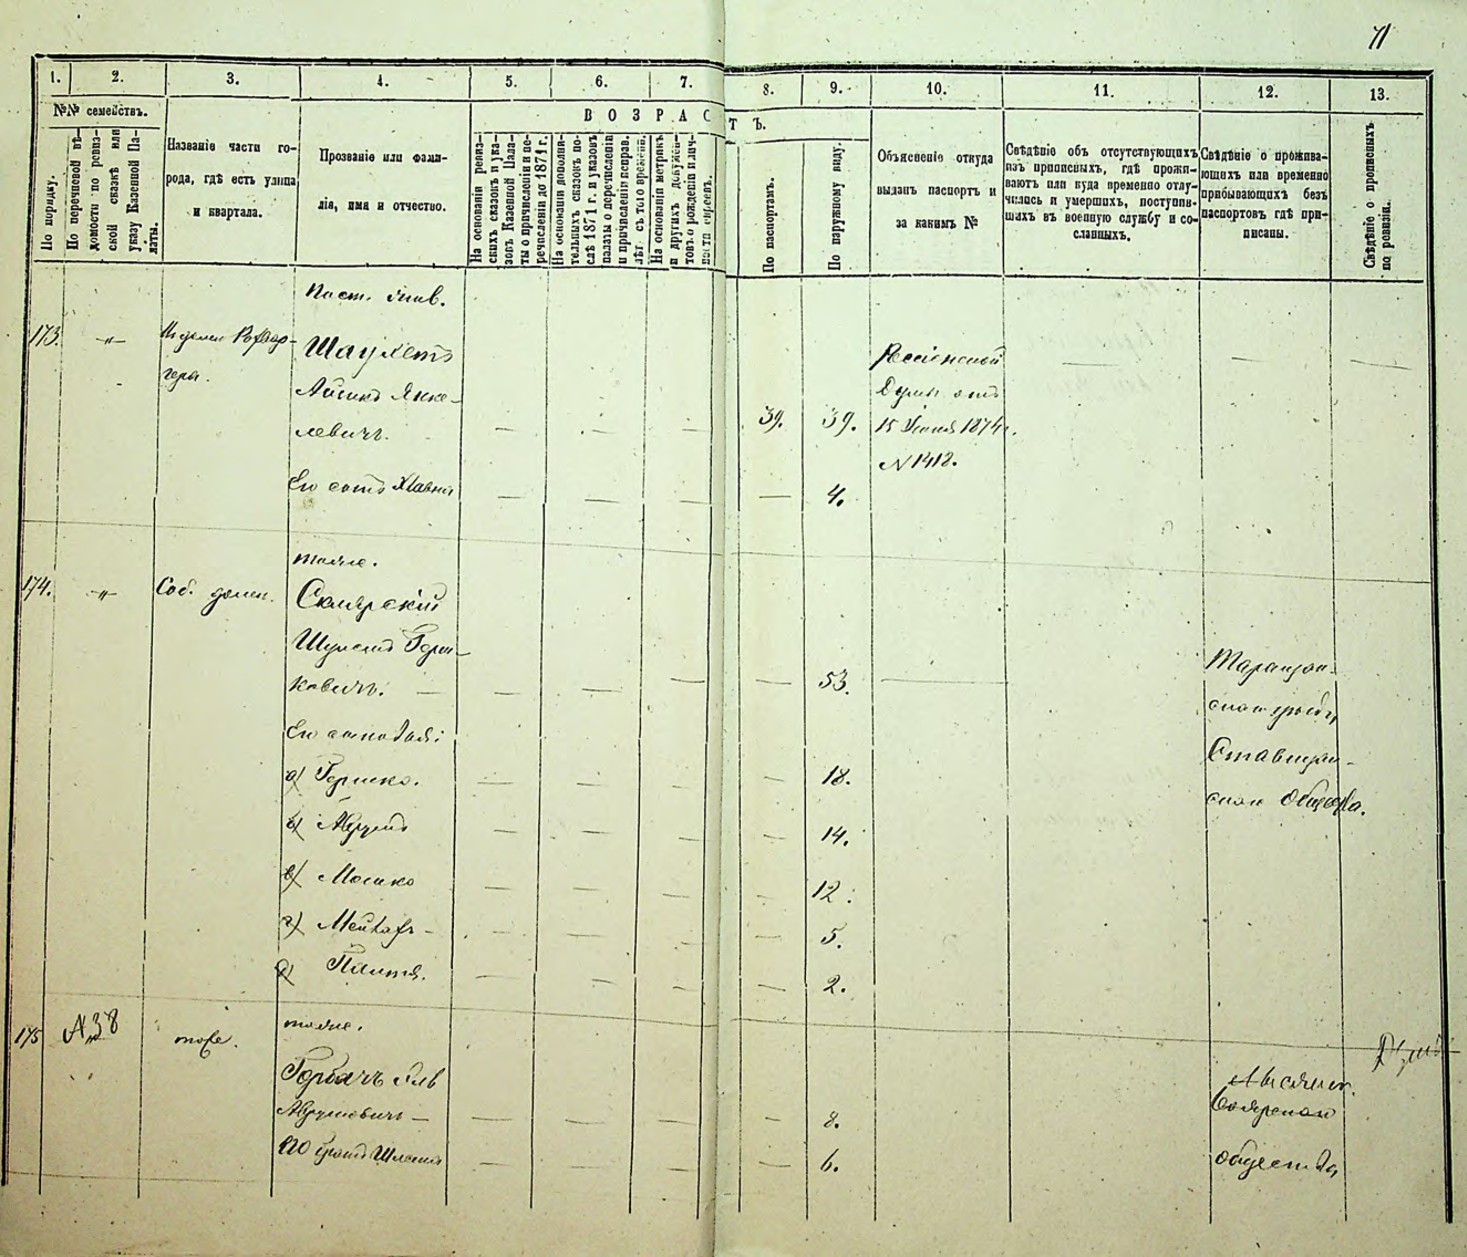 71
1. 2. 3. 4. 5. 6. 7. 8. 9. 10. 11. 12. 13.
№№ семействъ.
По порядку.
По перечневой вѣ-
домости по ревиз-
ской сказкѣ или
указу Казенной Па-
латы.
Названіе части го-
рода, гдѣ есть улица
и квартала.
Прозваніе или фами-
лія, имя и отчество.
ВОЗРАСТЪ.
На основаніи ревиз-
скихъ сказокъ и ука-
зовъ Казенной Пала-
ты о причисленіи и пе-
речисленіи до 1871 г.
На основаніи дополни-
тельныхъ сказокъ по-
слѣ 1871 г. и указовъ
палаты о перечисленіи
и причисленіи исправ.
лѣт съ того времени.
На основаніи метрикъ
и другихъ докумен-
товъ о рожденіи и лич-
ности евреевъ.
По паспортамъ.
По наружному виду.
Объясненіе откуда
выданъ паспортъ и
за какимъ №
Свѣдѣніе об отсутствующихъ
изъ приписныхъ, гдѣ прожи-
ваютъ или куда временно отлу-
чились и умершихъ, поступив-
шихъ въ военную службу и со-
сланныхъ.
Свѣдѣніе о прожива-
ющихъ или временно
прибывающихъ безъ
паспортовъ гдѣ при-
писаны.
Свѣдѣніе о прописныхъ
по ревизіи.
173. —〃—
Айсикъ Янке-
левичъ. — — — 39. 39.
Россіенской
Думы отъ
15 Іюня 1874 г.
№ 1412.
Его сынъ — — — — 4.
тоже.
174. —〃— Соб. домъ. Склярскій
Шулимъ Герш-
ковичъ. — — — — — 53. —
Его сыновья:
а) Гершко. — — — — 18.
б) Аврумъ — — — — 14.
в) Мошко — — — — 12.
г) — — — — 5.
д) — — — — 2.
Таращан-
скаго уѣзда,
Ставищан-
скаго Общества.
175 № 38 тоже. тоже.
Аврумовичъ — — — — — 8.
Его братъ — — — — 6.
общества